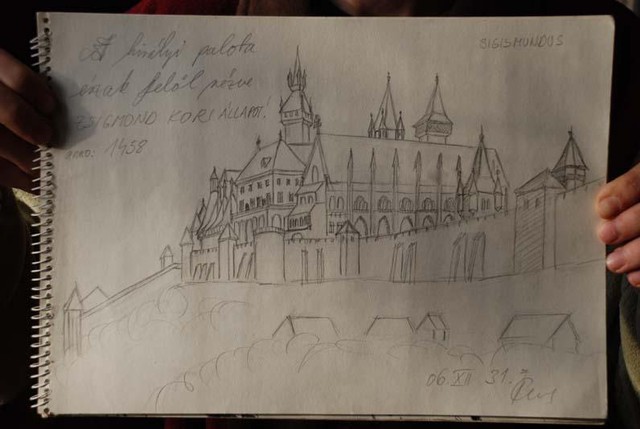 A királyi palota
észak felől nézve
ZSIGMOND KORI ÁLLAPOT!
ANNO: 1458
SIGISMUNDUS
06. XII 31.